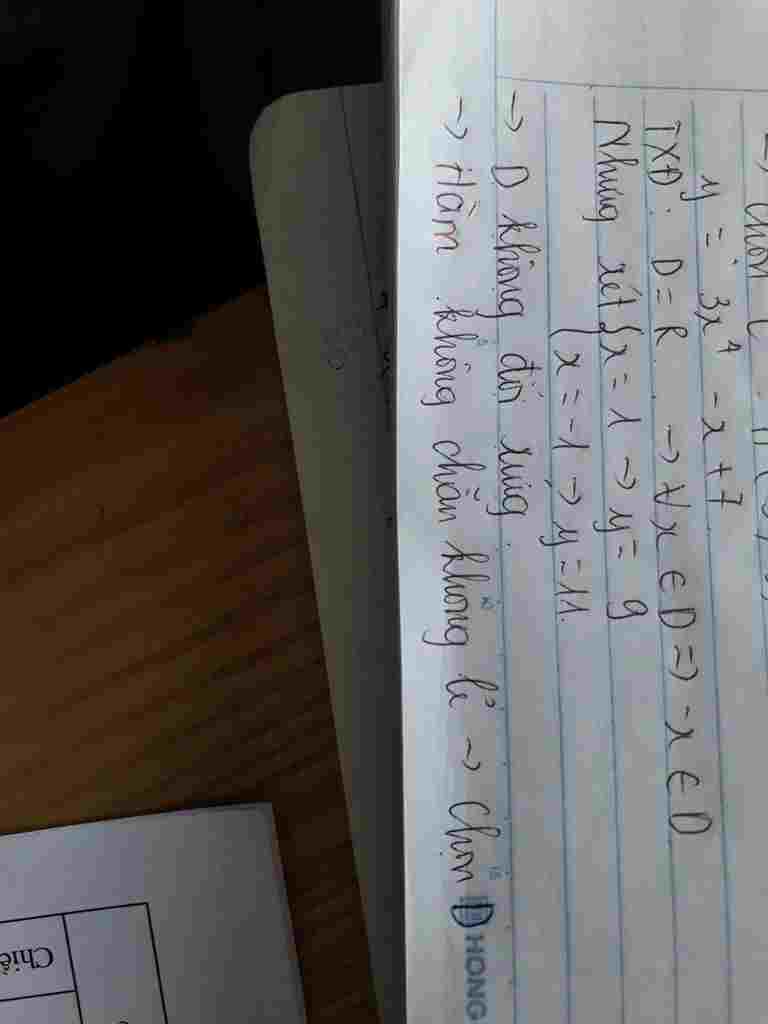 → Chọn C.
y = 3x⁴ - x + 7
TXĐ: D = R → ∀x ∈ D => -x ∈ D
Nhưng xét { x = 1 → y = 9
{ x = -1 → y = 11.
→ D không đối xứng.
→ Hàm không chẵn không lẻ → Chọn D
HONG
Chiề